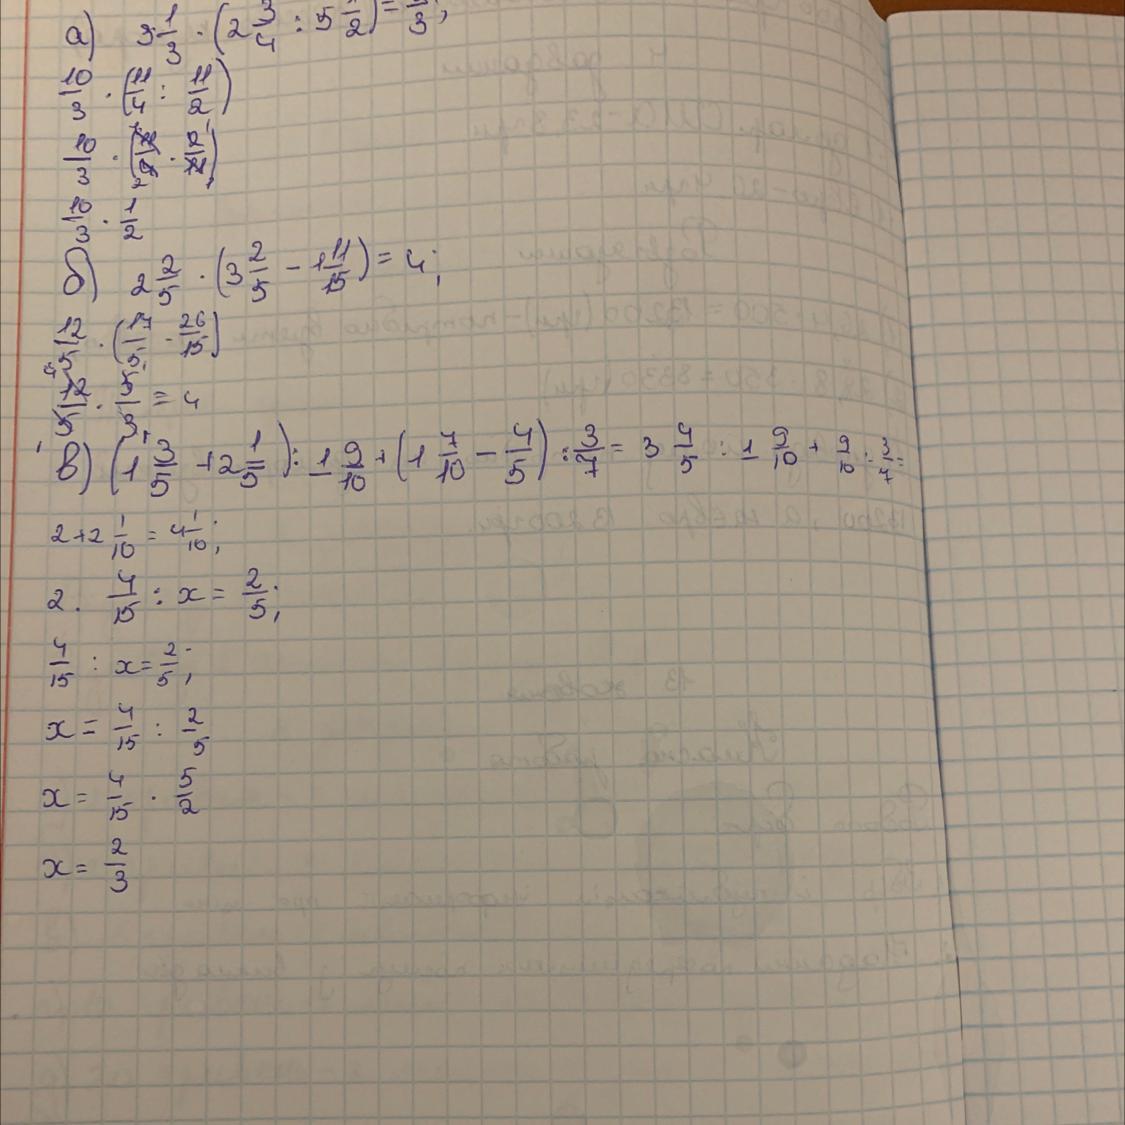 а) 3 1/3 · (2 3/4 : 5 1/2) = /3;
10/3 · (11/4 : 11/2)
10/3 ·
10/3 · 1/2
б) 2 2/5 · (3 2/5 - 1 11/15) = 4;
12/5 · (17/5 - 26/15)
12/5 · 5/3 = 4
в) (1 3/5 + 2 1/5) : 1 9/10 + (1 7/10 - 4/5) : 3/7 = 3 4/5 : 1 9/10 + 9/10 : 3/7 =
2 + 2 1/10 = 4 1/10;
2. 4/15 : x = 2/5;
4/15 : x = 2/5;
x = 4/15 : 2/5
x = 4/15 · 5/2
x = 2/3